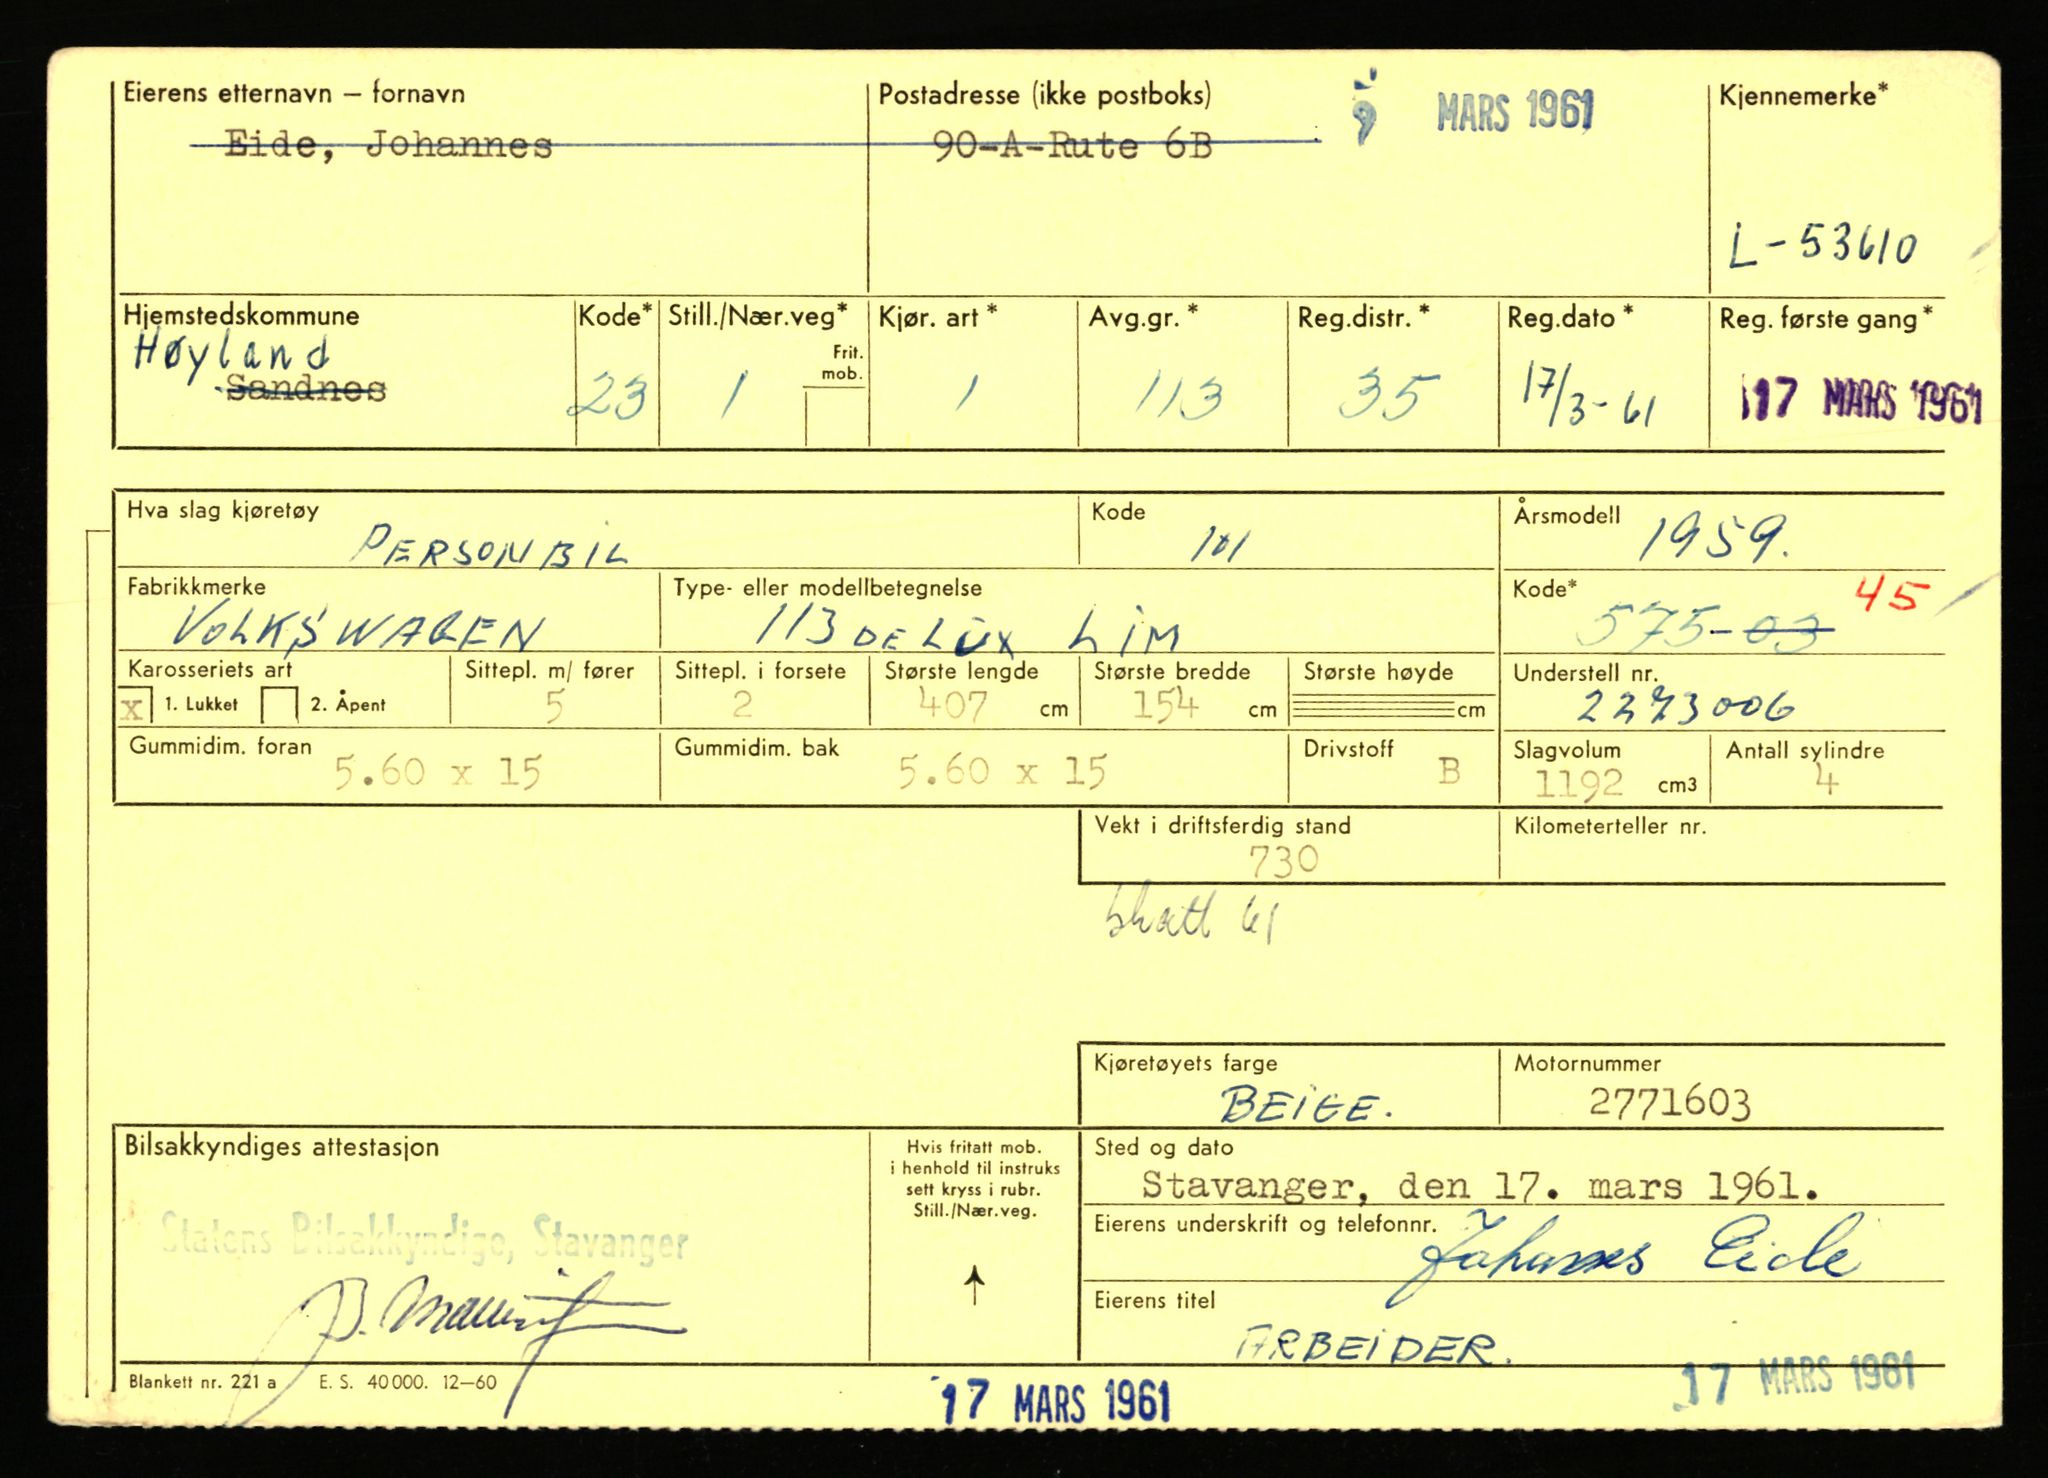 Eierens etternavn – fornavn Postadresse (ikke postboks) MARS 1961 Kjennemerke*
Eide, Johannes 90-A-Rute 6B
L-53610
Hjemstedskommune Kode* Still./Nær.veg* Kjør. art* Avg.gr.* Reg.distr.* Reg.dato* Reg. første gang*
Høyland Frit.
mob.
Sandnes 23 1 1 113 35 17/3-61 17 MARS 1961
Hva slag kjøretøy Kode Årsmodell
PERSONBIL 101 1959.
Fabrikkmerke Type- eller modellbetegnelse Kode* 45
VOLKSWAGEN 113 DE LUX LIM 575-03
Karosseriets art Sittepl. m/ fører Sittepl. i forsete Største lengde Største bredde Største høyde Understell nr.
x 1. Lukket 2. Åpent 5 2 407 cm 154 cm cm 2273006
Gummidim. foran Gummidim. bak Drivstoff Slagvolum Antall sylindre
5.60 x 15 5.60 x 15 B 1192 cm3 4
Vekt i driftsferdig stand Kilometerteller nr.
730
skatt 61
Kjøretøyets farge Motornummer
BEIGE. 2771603
Bilsakkyndiges attestasjon Hvis fritatt mob.
i henhold til instruks
sett kryss i rubr.
Still./Nær.veg.
Sted og dato
Stavanger, den 17. mars 1961.
Statens Bilsakkyndige, Stavanger
Eierens underskrift og telefonnr. Johannes Eide
Eierens titel
ARBEIDER.
Blankett nr. 221 a E. S. 40 000. 12–60 17 MARS 1961 17 MARS 1961